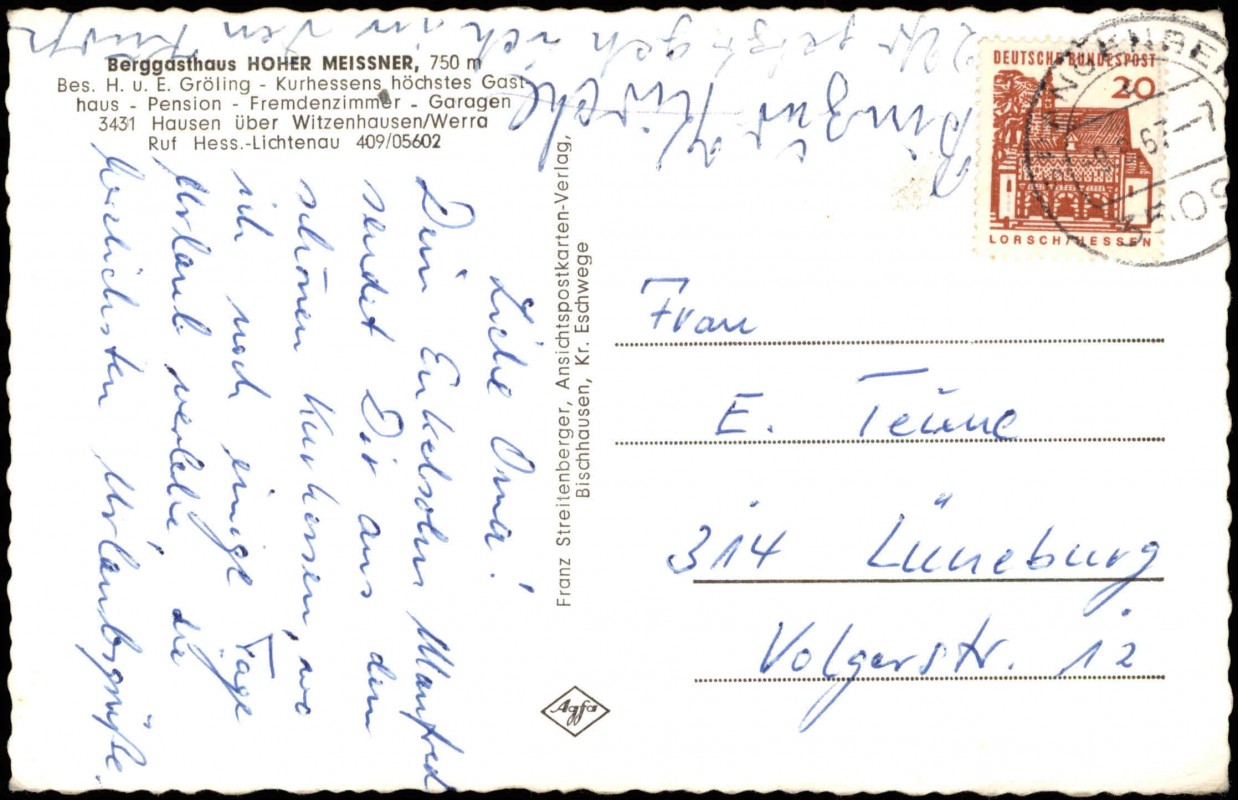 Berggasthaus HOHER MEISSNER, 750 m
Bes. H. u. E. Gröling - Kurhessens höchstes Gast-
haus - Pension - Fremdenzimmer - Garagen
3431 Hausen über Witzenhausen/Werra
Ruf Hess.-Lichtenau 409/05602
Liebe Oma!
Dein Enkelsohn Manfred
sendet Dir aus dem
schönen Kurhessen, wo
ich noch einige Tage
Urlaub verlebe die
herzlichsten Urlaubsgrüße.
Bin zur Kirche
Uhr jetzt geh ich in den
Franz Streitenberger, Ansichtspostkarten-Verlag,
Bischhausen, Kr. Eschwege
Agfa
DEUTSCHE BUNDESPOST
20
LORSCH/HESSEN
Frau
E. Teune
314 Lüneburg
Volgerstr. 12